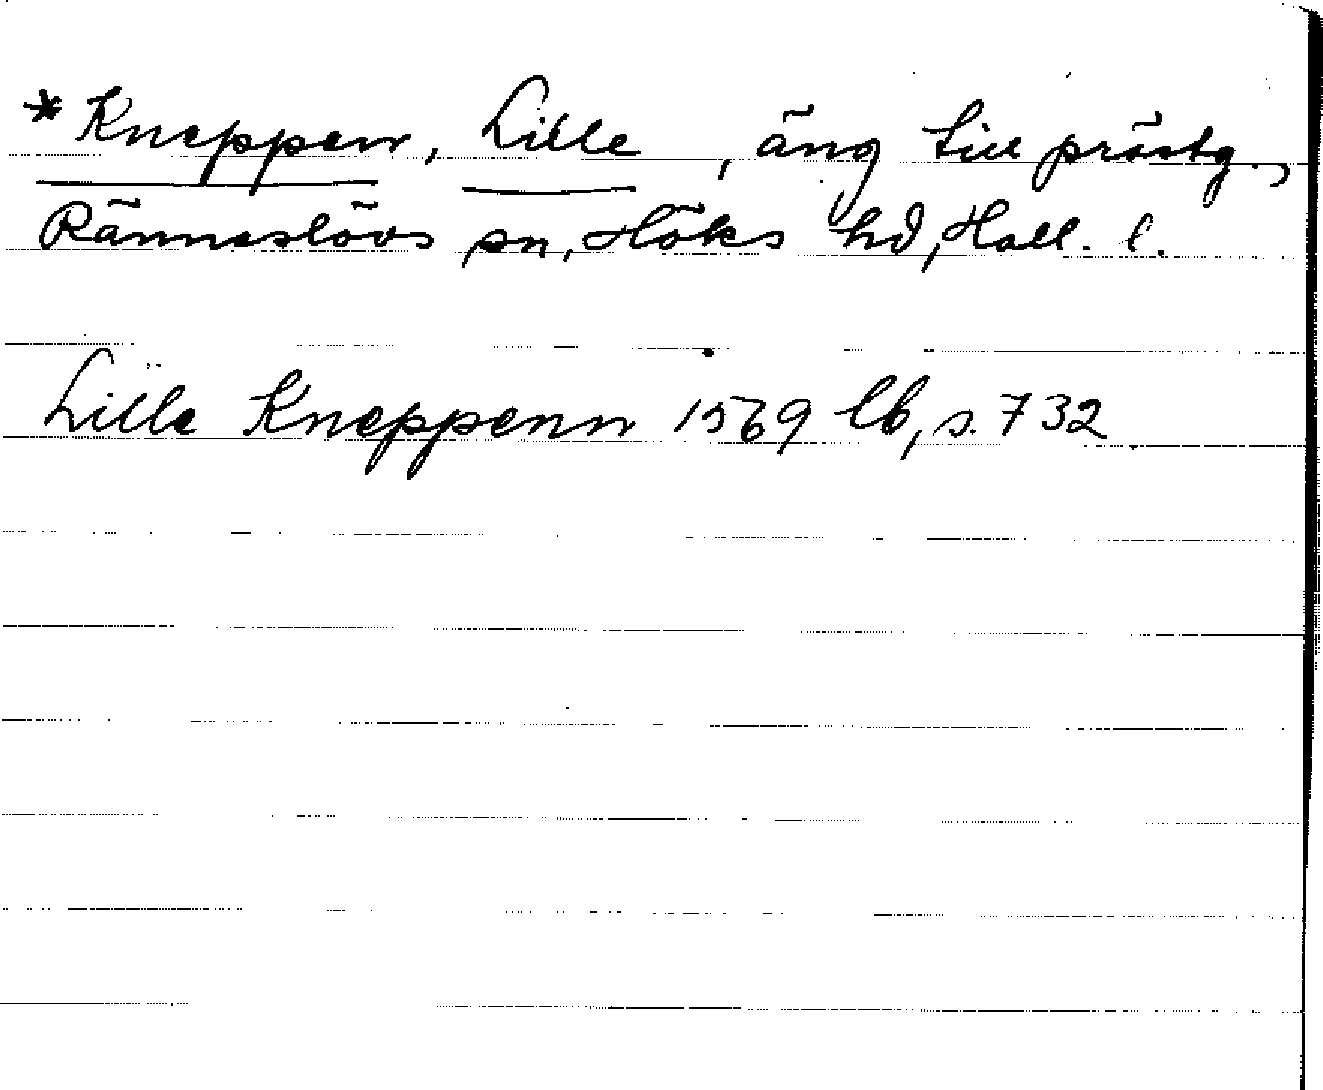 *Kneppen, Lille, äng till prästg.,
Ränneslövs sn, Höks hd, Hall. l.
Lille Kneppenn 1569 lb, s. 732